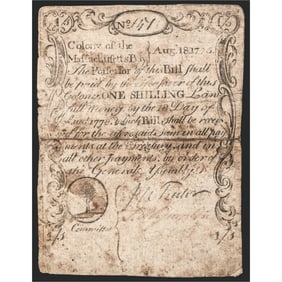 1/
1/
No 147
Colony of the
Massachusetts Bay
Aug 18 177
The Possessor of this Bill shall
be paid by the Treasurer of this
Colony ONE SHILLING Law
full Money by the 18 Day of
1778 which Bill shall be recei
ved for the aforesaid sum in all pay
ments at the Treasury and in
all other payments by order of
the General Assembly
Committee
1/
1/